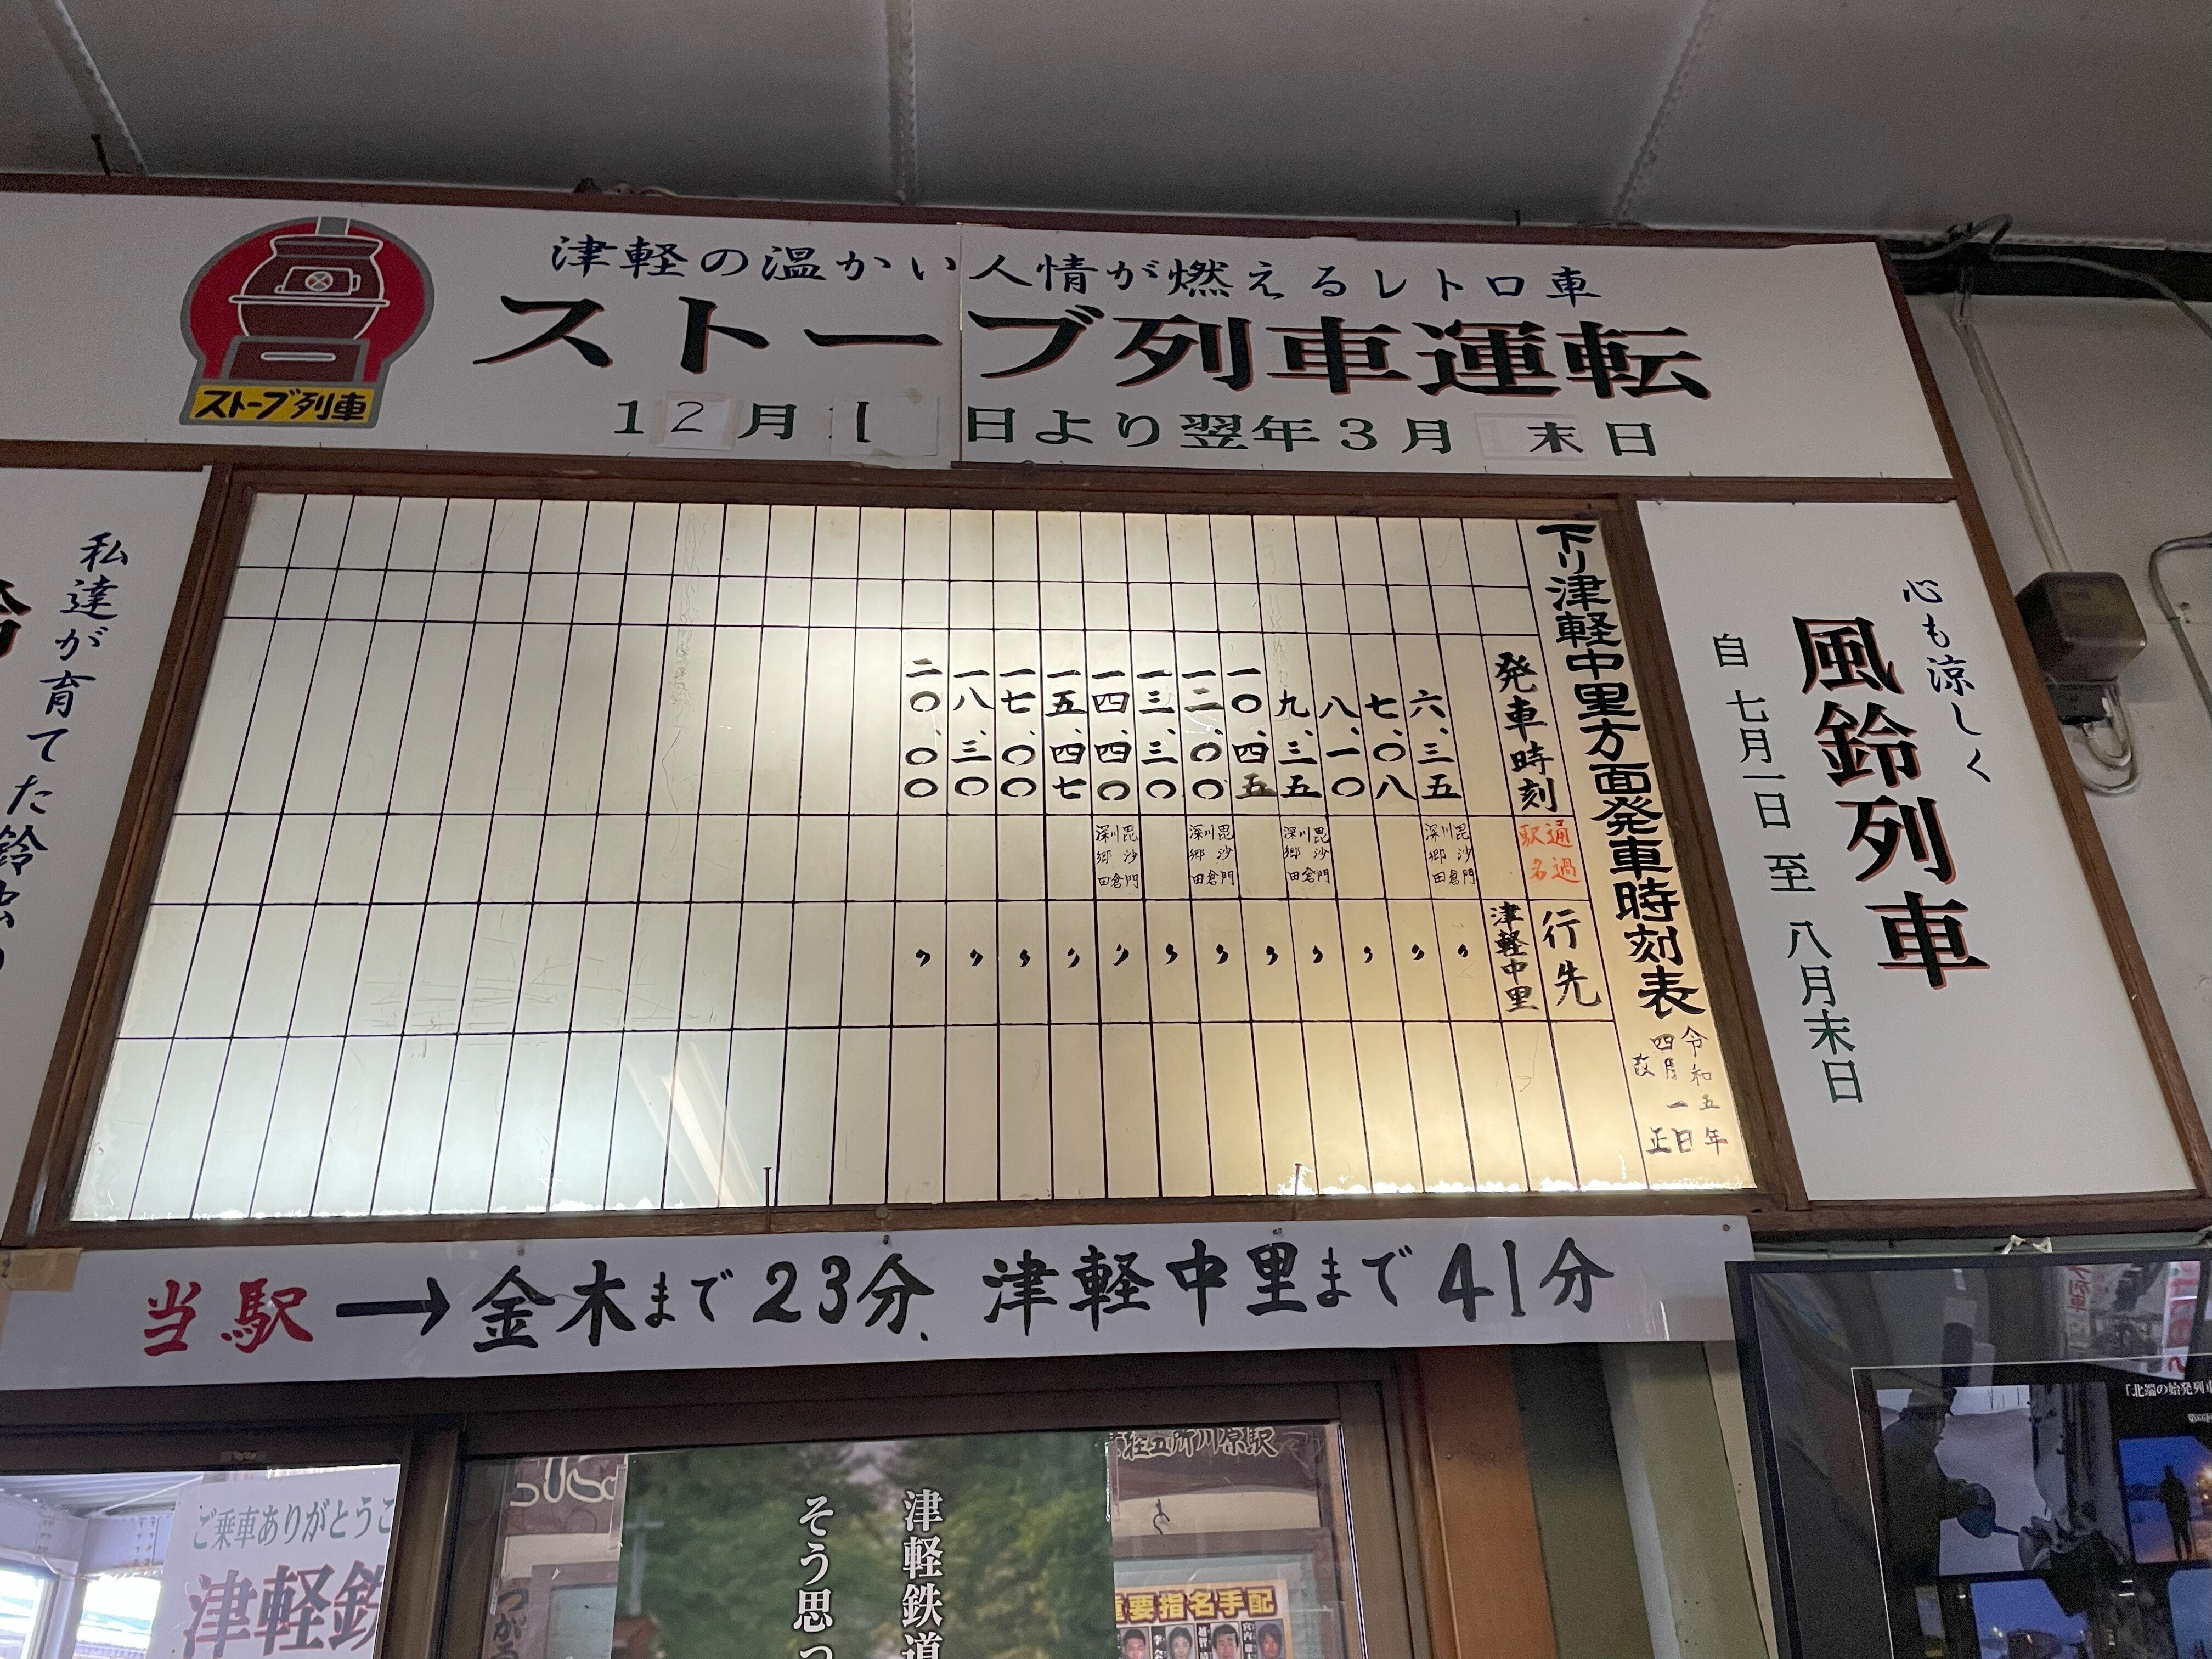 津軽の温かい人情が燃えるレトロ車
ストーブ列車運転
12月1日より翌年3月末日
ストーブ列車
心も涼しく
風鈴列車
自 七月一日 至 八月末日
下り津軽中里方面発車時刻表
令和五年
四月一日
改正
発車時刻 通過駅名 行先
津軽中里
六、三五 毘沙門 川倉 深郷田 〃
七、〇八 〃
八、一〇 〃
九、三五 毘沙門 川倉 深郷田 〃
一〇、四五 〃
一二、〇〇 毘沙門 川倉 深郷田 〃
一三、三〇 〃
一四、四〇 毘沙門 川倉 深郷田 〃
一五、四七 〃
一七、〇〇 〃
一八、三〇 〃
二〇、〇〇 〃
私達が育てた鈴虫の
当駅→金木まで23分、津軽中里まで41分
ご乗車ありがとうご
津軽鉄
津軽鉄道
そう思っ
五所川原駅
重要指名手配
「北端の始発列車